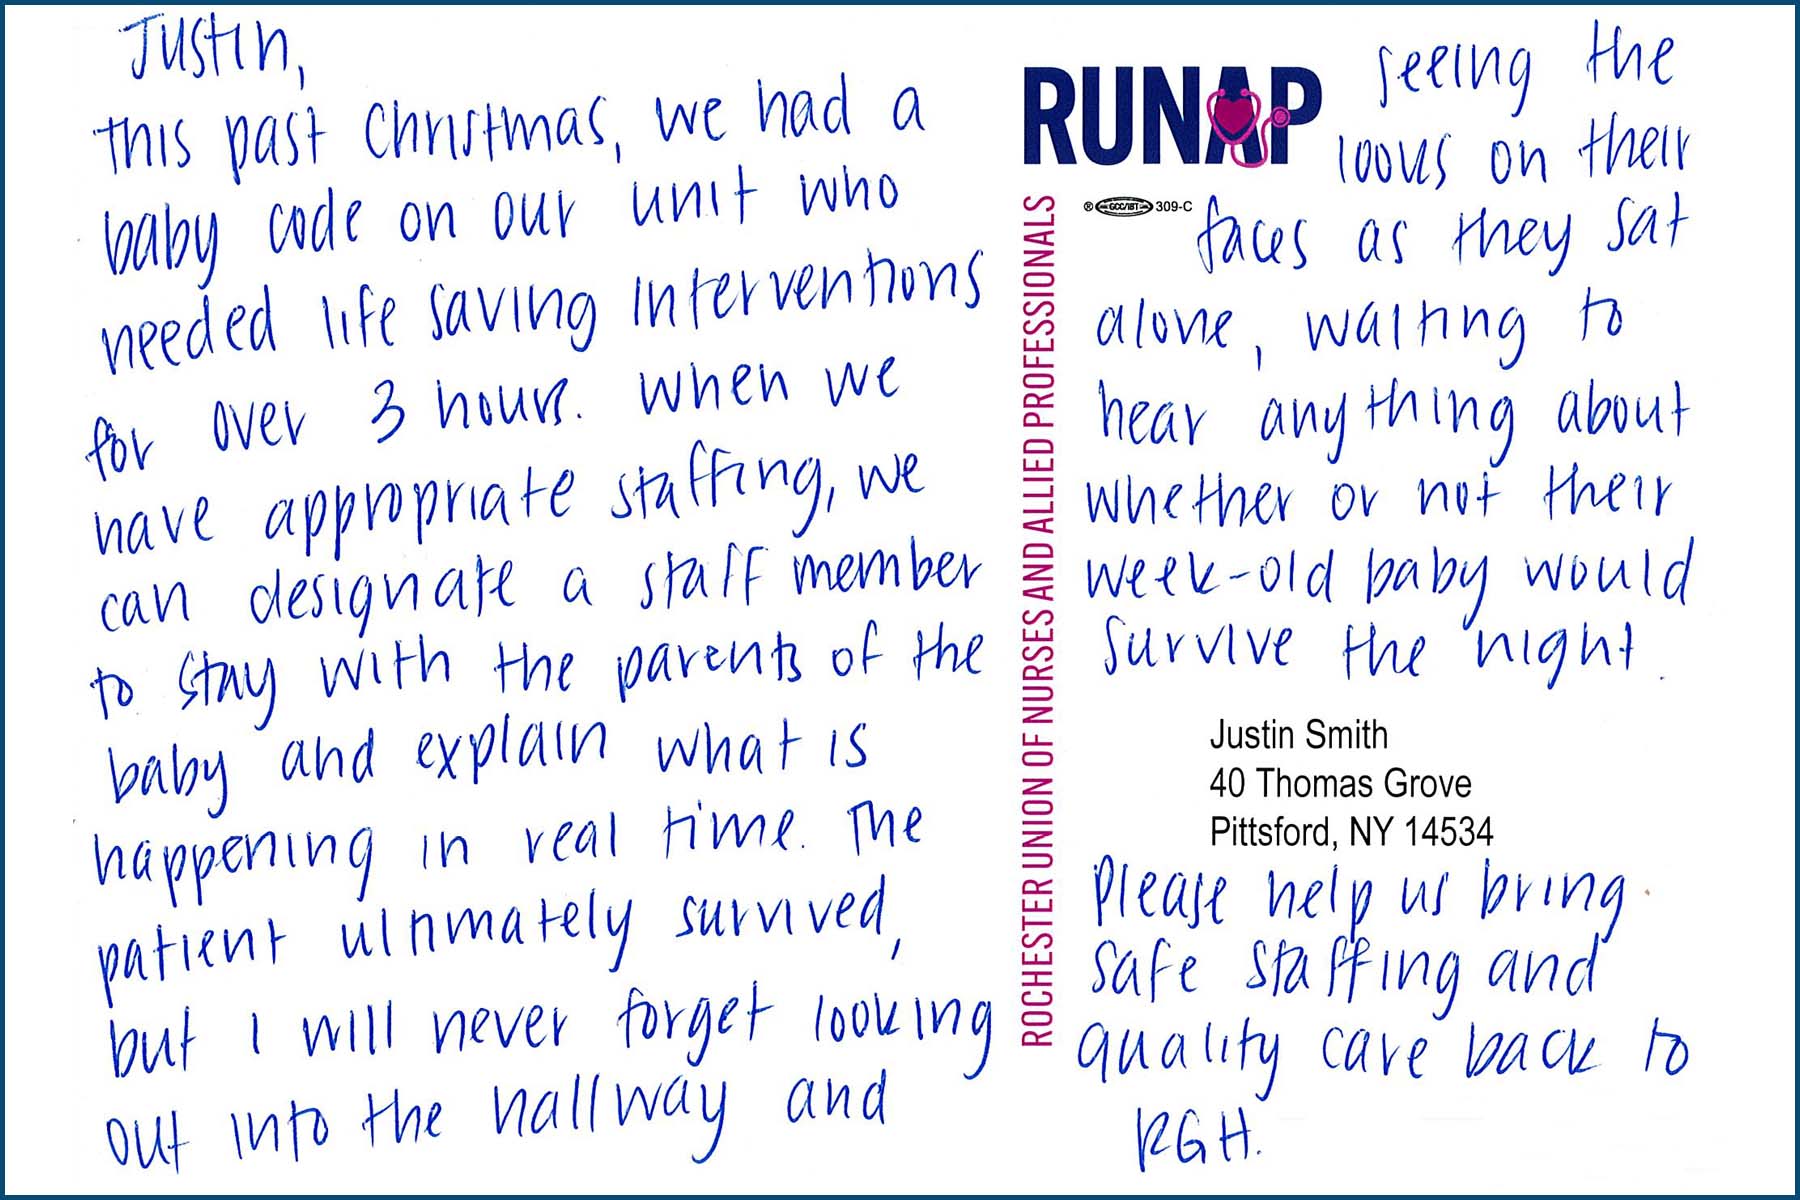 Justin,
This past Christmas, we had a
baby code on our unit who
needed life saving interventions
for over 3 hours. When we
have appropriate staffing, we
can designate a staff member
to stay with the parents of the
baby and explain what is
happening in real time. The
patient ultimately survived,
but I will never forget looking
out into the hallway and
RUNAP
® GCC/IBT 309-C
ROCHESTER UNION OF NURSES AND ALLIED PROFESSIONALS
seeing the
looks on their
faces as they sat
alone, waiting to
hear anything about
whether or not their
week-old baby would
survive the night.
Justin Smith
40 Thomas Grove
Pittsford, NY 14534
Please help us bring
safe staffing and
quality care back to
RGH.